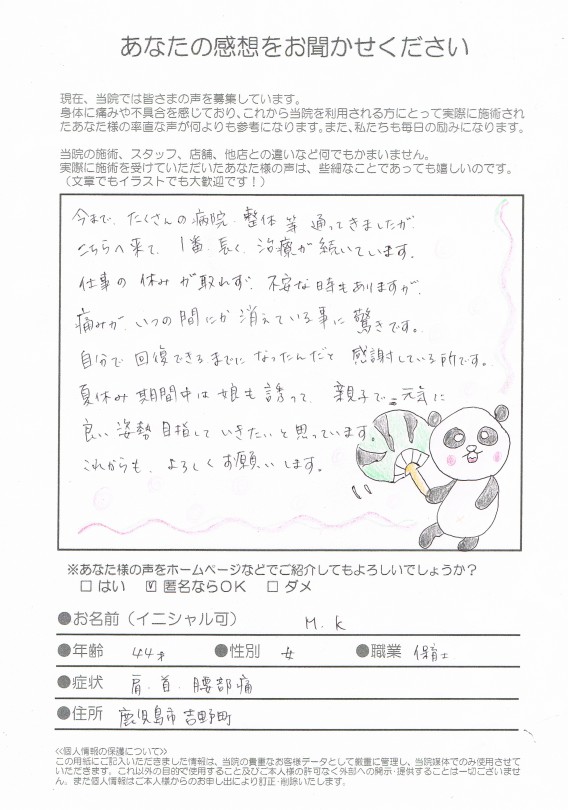 あなたの感想をお聞かせください
現在、当院では皆さまの声を募集しています。
身体に痛みや不具合を感じており、これから当院を利用される方にとって実際に施術され
たあなた様の率直な声が何よりも参考になります。また、私たちも毎日の励みになります。
当院の施術、スタッフ、店舗、他店との違いなど何でもかまいません。
実際に施術を受けていただいたあなた様の声は、些細なことであっても嬉しいのです。
（文章でもイラストでも大歓迎です！）
今まで、たくさんの病院、整体 等 通ってきましたが、
こちらへ来て、1番、長く、治療が続いています。
仕事の休みが取れず、不安な時もありますが、
痛みが、いつの間にか消えている事に驚きです。
自分で回復できるまでになったんだと感謝している所です。
夏休み期間中は娘も誘って、親子で元気に
良い姿勢目指していきたいと思っています。
これからも、よろしくお願いします。
※あなた様の声をホームページなどでご紹介してもよろしいでしょうか？
□ はい ☑ 匿名ならOK □ ダメ
●お名前（イニシャル可） M.K
●年齢 44才 ●性別 女 ●職業 保育士
●症状 肩、首、腰部痛
●住所 鹿児島市吉野町
≪個人情報の保護について≫
この用紙にご記入いただきました情報は、当院の貴重なお客様データとして厳重に管理し、当院媒体でのみ使用させて
いただきます。これ以外の目的で使用すること及びご本人様の許可なく外部への開示・提供することは一切ございませ
ん。また個人情報はご本人様からのお申し出により訂正・削除いたします。